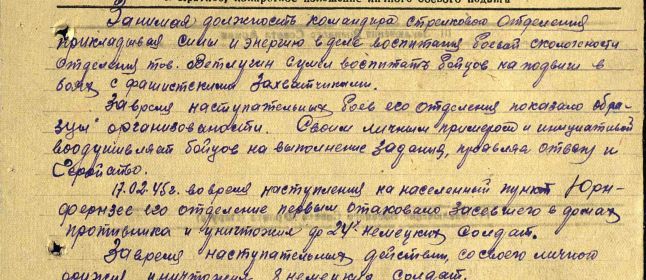 Краткое, конкретное изложение личного боевого подвига
Занимая должность командира стрелкового отделения
прикладывая силы и энергию в деле воспитания боевой сколоченности
отделения тов. Ветлугин сумел воспитать бойцов на подвиги в
боях с фашистскими захватчиками.
За время наступательных боев его отделения показало обра-
зцы организованости. Своим личным примером и инициативой
воодушевляет бойцов на выполнение задания, проявляя отвагу и
геройство.
17.02.45г. во время наступления на населенный пункт Юрн-
фернзее его отделение первым атаковало засевшего в домах
противника и уничтожил до 24х немецких солдат.
За время наступательных действий, со своего личного
оружия уничтожил 8 немецких солдат.